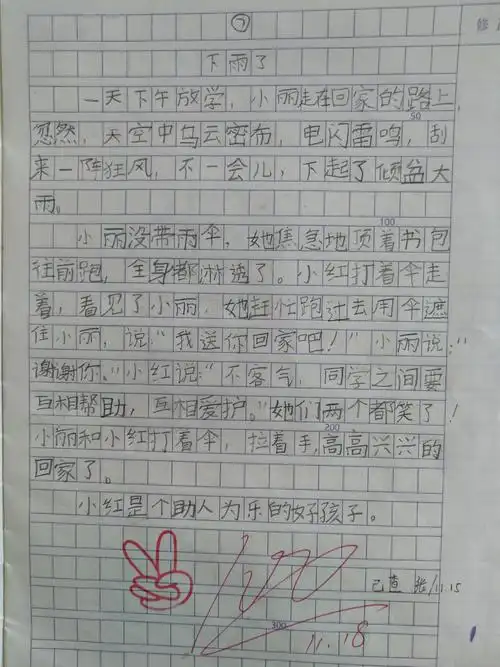 ⑦
修
下雨了
一天下午放学，小丽走在回家的路上，
50
忽然，天空中乌云密布，电闪雷鸣，刮
来一阵狂风，不一会儿，下起了倾盆大
雨。
100
小丽没带雨伞，她焦急地顶着书包
往前跑，全身都淋透了。小红打着伞走
着，看见了小丽，她赶忙跑过去用伞遮
住小丽，说：“我送你回家吧！”小丽说：“
谢谢你。”小红说：“不客气，同学之间要
互相帮助，互相爱护。”她们两个都笑了！
200
小丽和小红打着伞，拉着手，高高兴兴的
回家了。
小红是个助人为乐的好孩子。
已查 张/11.15
100
300
11.18